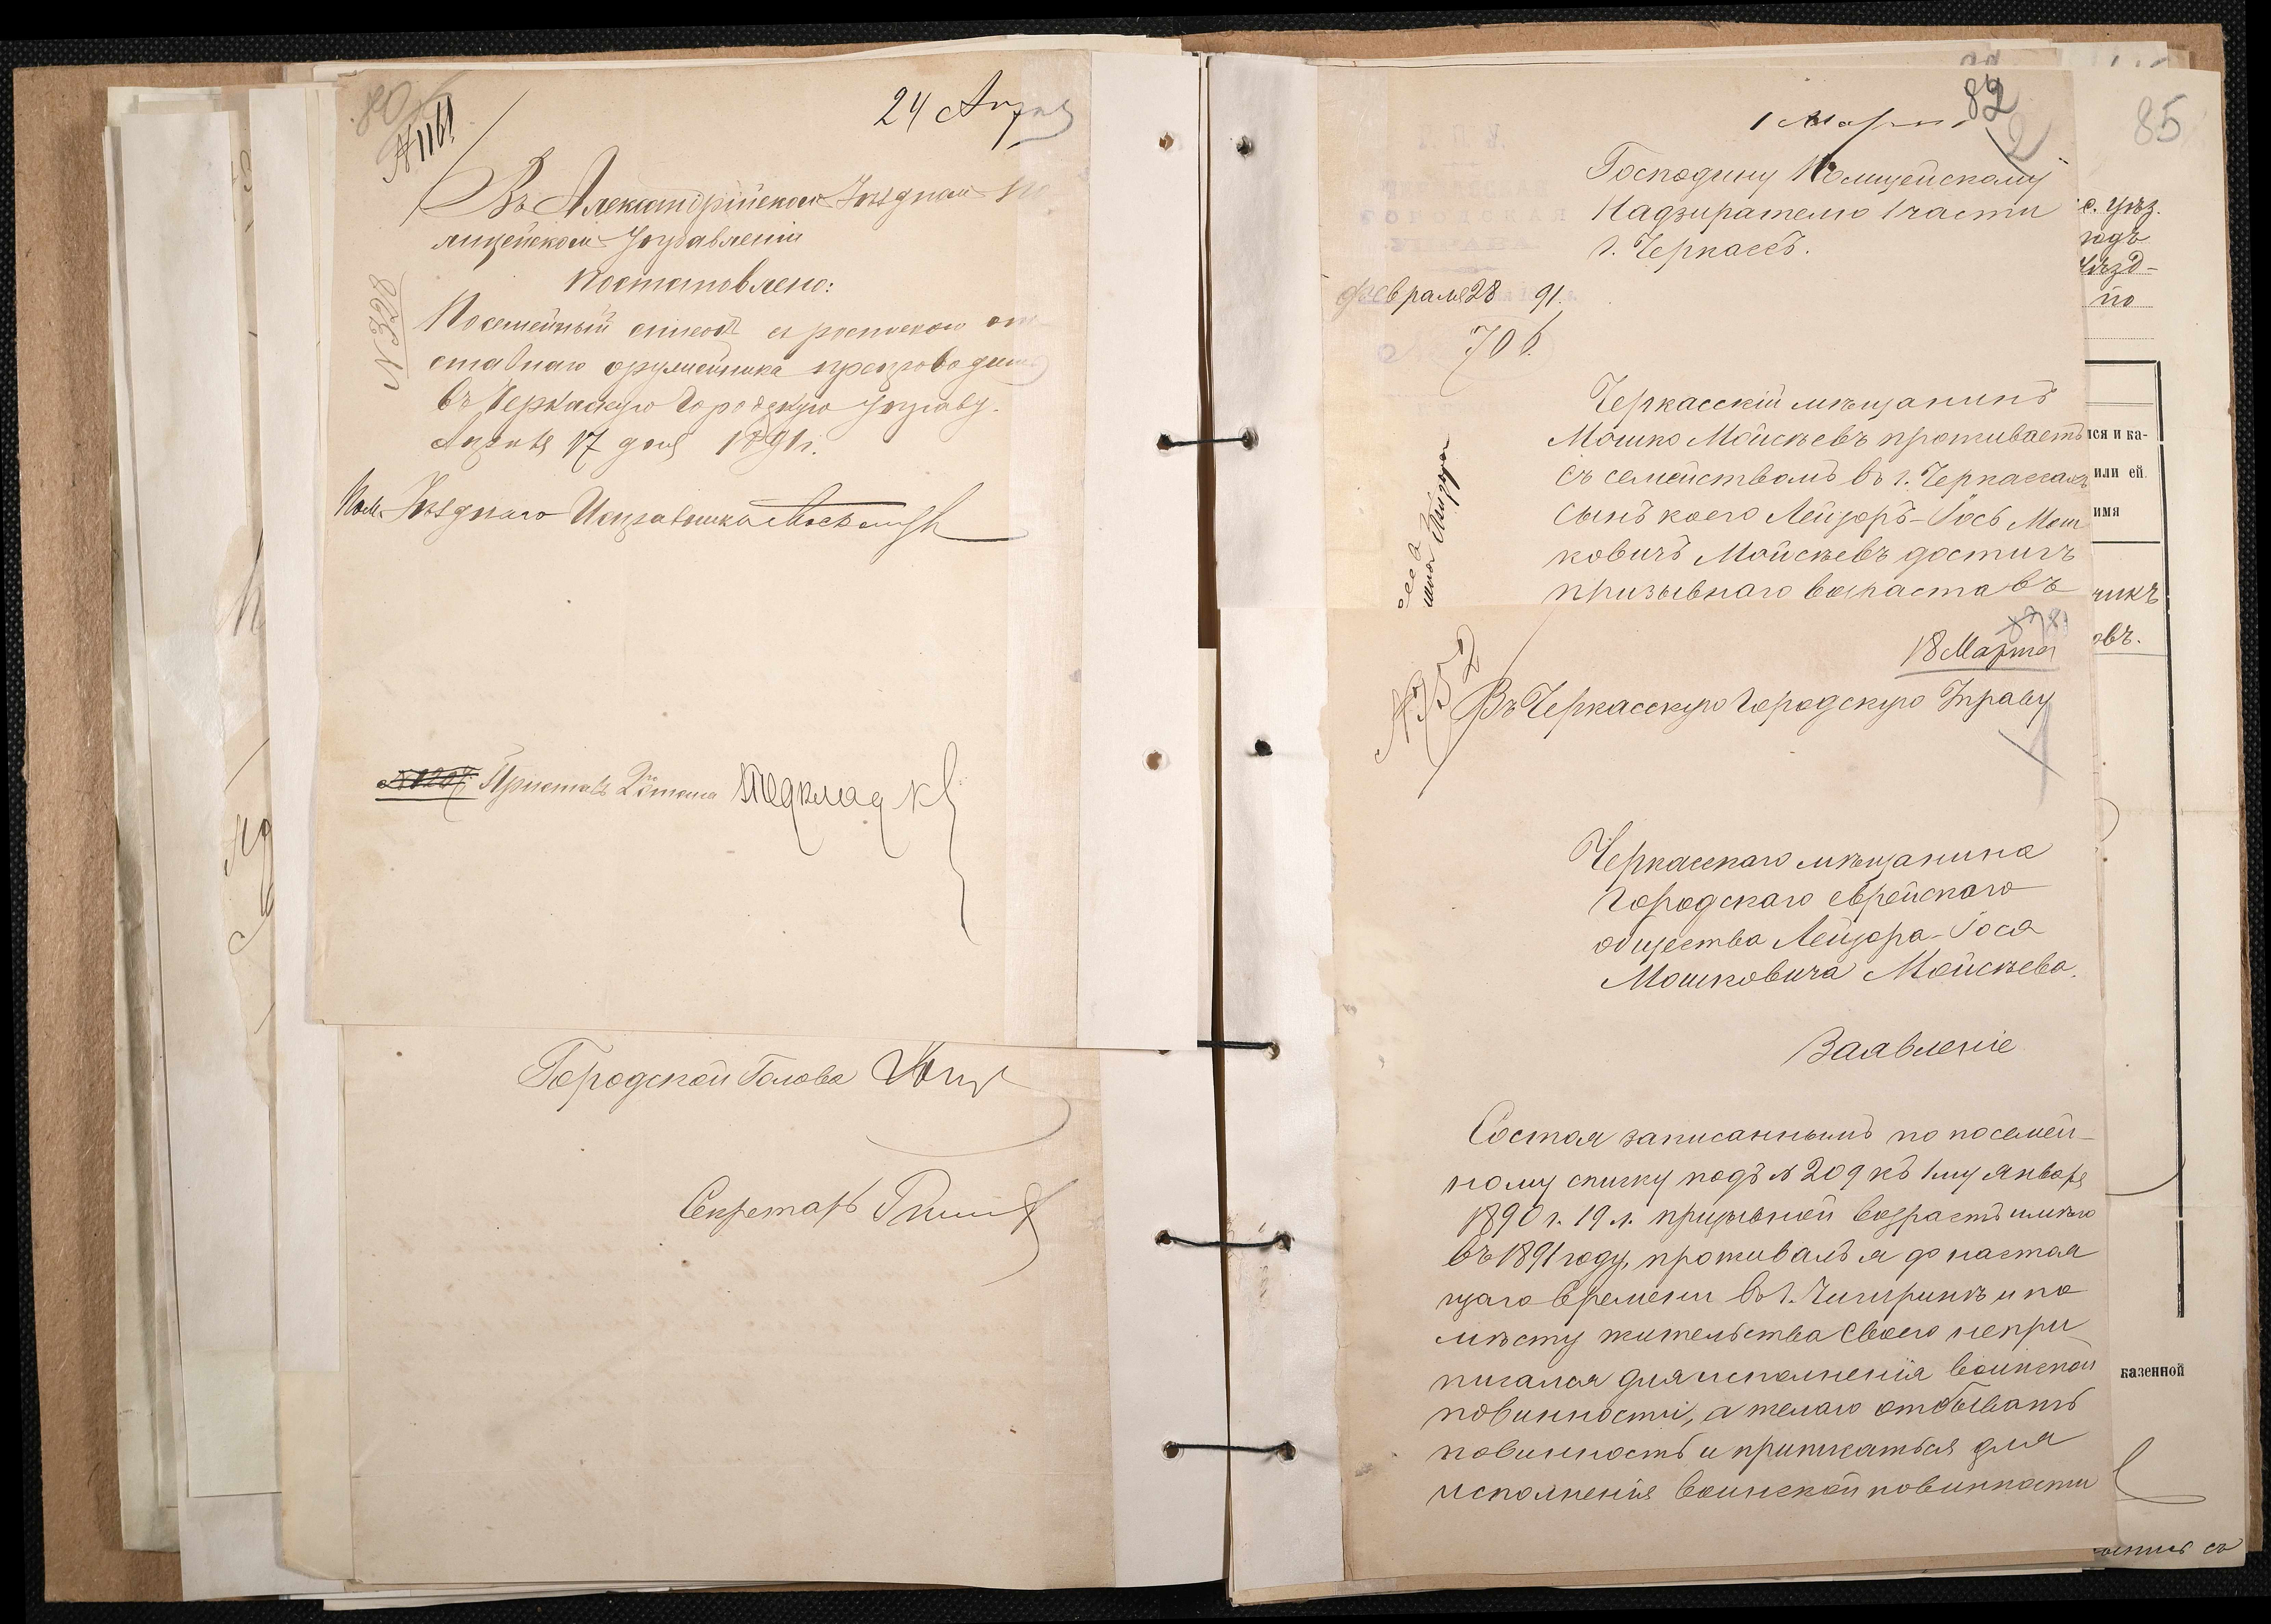 80
№ 1161
24 Апреля
Въ Александрійскомъ Уѣздномъ По
лицейскомъ Управленіи
Постановлено:
№ 328
Посемейный списокъ съ роспискою от
ставнаго оружейника препроводить
въ Черкаскую Городскую Управу.
Апрѣля 17 дня 1891 г.
Пом. Уѣзднаго Исправника
Приставъ 2го стана
Городской Голова
Секретарь
82
2
1 Марта
Господину Полицейскому
Надзирателю 1 части
г. Черкассъ.
Февраля 28 91.
706.
Черкасскій мѣщанинъ
Мошко Мойсѣевъ проживаетъ
съ семействомъ въ г. Черкассахъ
сынъ коего Лейзоръ-Іось Мош
ковичъ Мойсѣевъ достигъ
призывнаго возраста въ
18 Марта
№ 952
Въ Черкасскую Городскую Управу
Черкасскаго мѣщанина
Городскаго еврейскаго
общества Лейзора-Іося
Мошковича Мойсѣева.
Заявленіе
Состоя записаннымъ по посемей-
ному списку подъ № 209 къ 1му января
1890 г. 19 л. призывной возрастъ имѣю
въ 1891 году, проживалъ я до настоя
щаго времени въ г. Чигиринѣ и по
мѣсту жительства своего непри
писался для исполненія воинской
повинности, а желаю отбывать
повинность и приписаться для
исполненія воинской повинности
85
с. уѣз.
годъ
уѣзд-
по
ися и ка-
или ей
имя
чикъ
овъ.
казенной